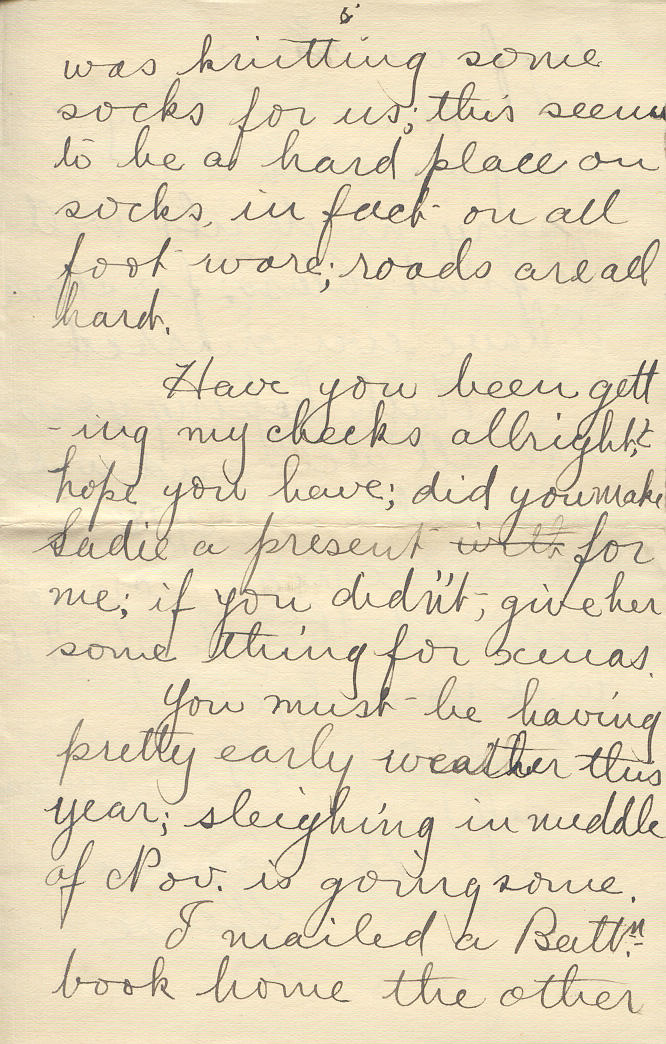 5
was knitting some
socks for us; this seems
to be a hard place on
socks, in fact on all
foot ware; roads are all
hard.
Have you been gett
-ing my checks allright,
hope you have; did you make
Sadie a present with for
me; if you didn't, give her
some thing for xmas.
You must be having
pretty early weather this
year; sleighing in middle
of Nov. is going some.
I mailed a Batt.n
book home the other